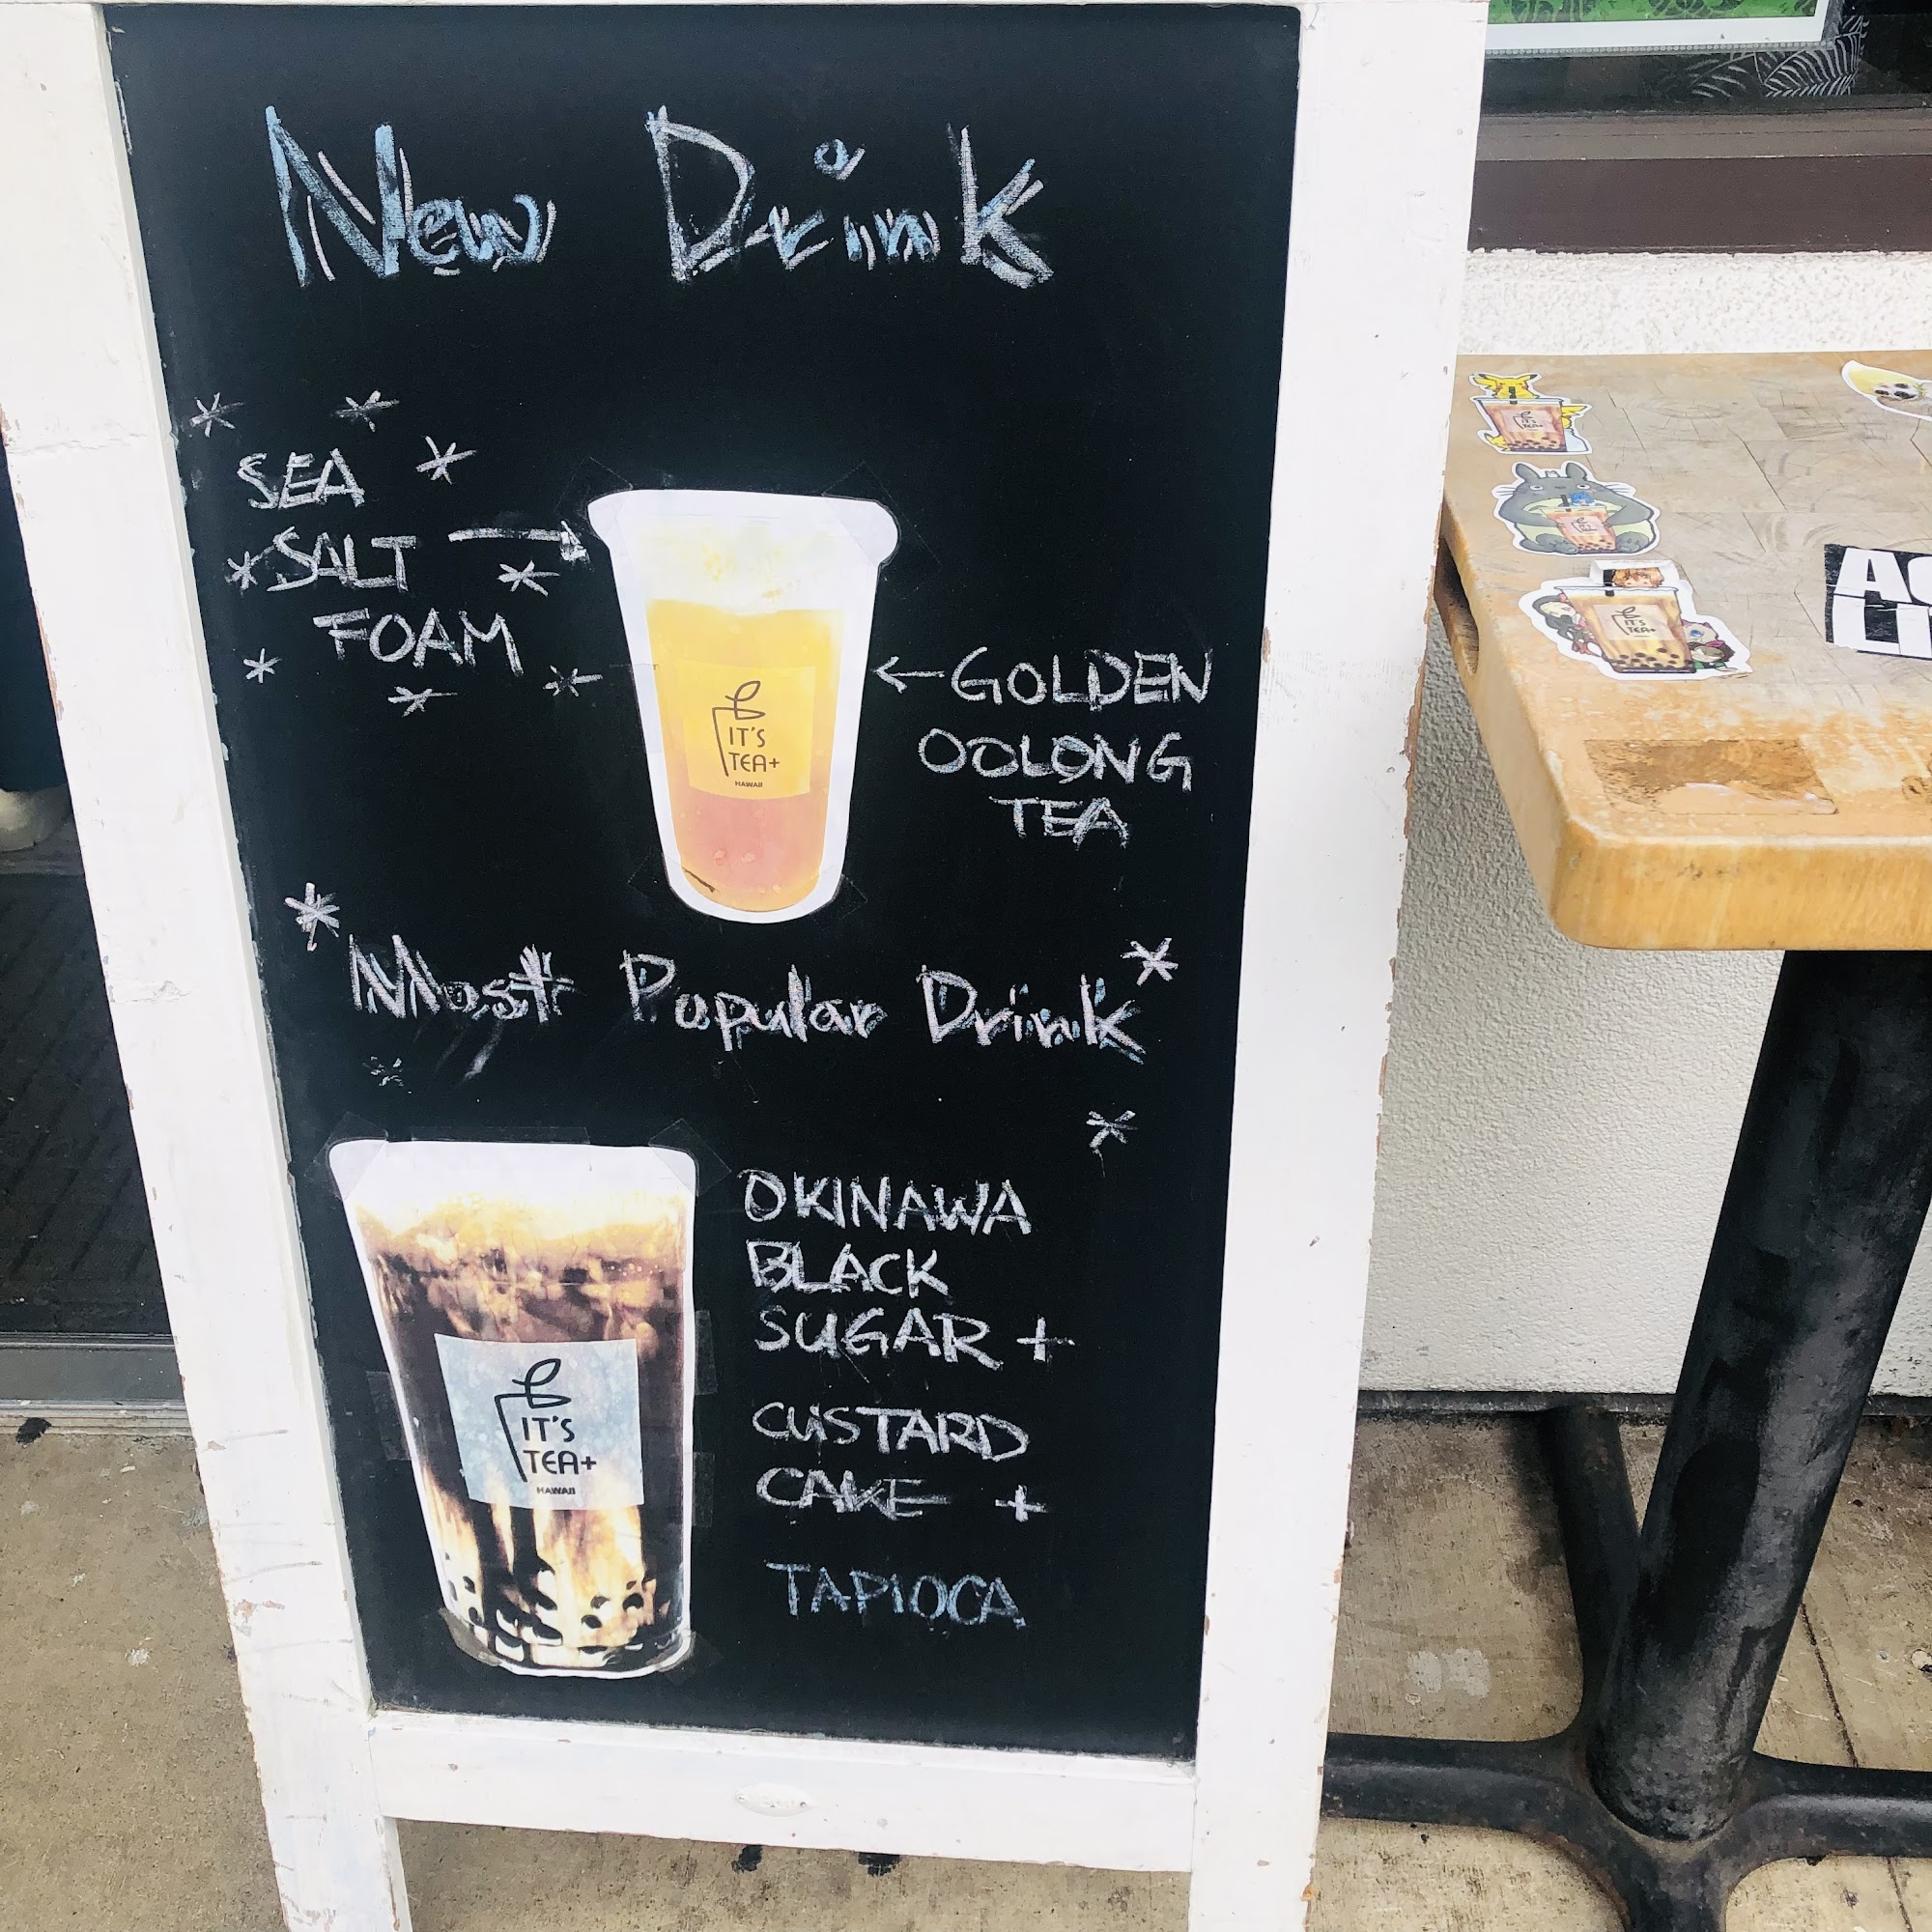 New Drink
SEA
SALT
FOAM
GOLDEN
OOLONG
TEA
IT'S
TEA+
HAWAII
Most Popular Drink
OKINAWA
BLACK
SUGAR +
CUSTARD
CAKE +
TAPIOCA
IT'S
TEA+
HAWAII
IT'S
TEA+